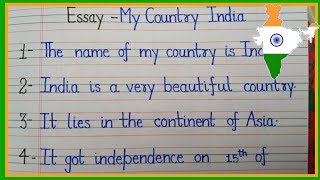 Essay - My Country India
1- The name of my country is In
2- India is a very beautiful country.
3- It lies in the continent of Asia.
4- It got independence on 15th of